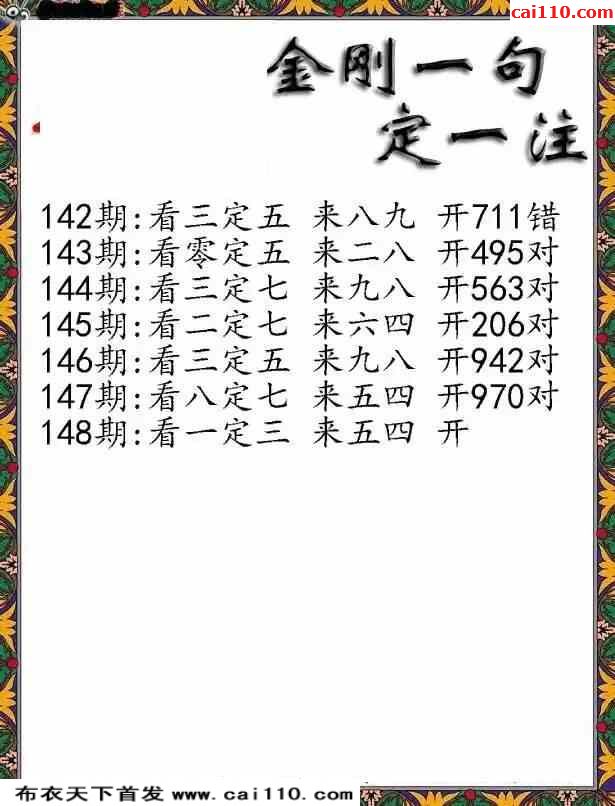 cai110.com
金刚一句
定一注
142期:看三定五 来八九 开711错
143期:看零定五 来二八 开495对
144期:看三定七 来九八 开563对
145期:看二定七 来六四 开206对
146期:看三定五 来九八 开942对
147期:看八定七 来五四 开970对
148期:看一定三 来五四 开
布衣天下首发 www.cai110.com